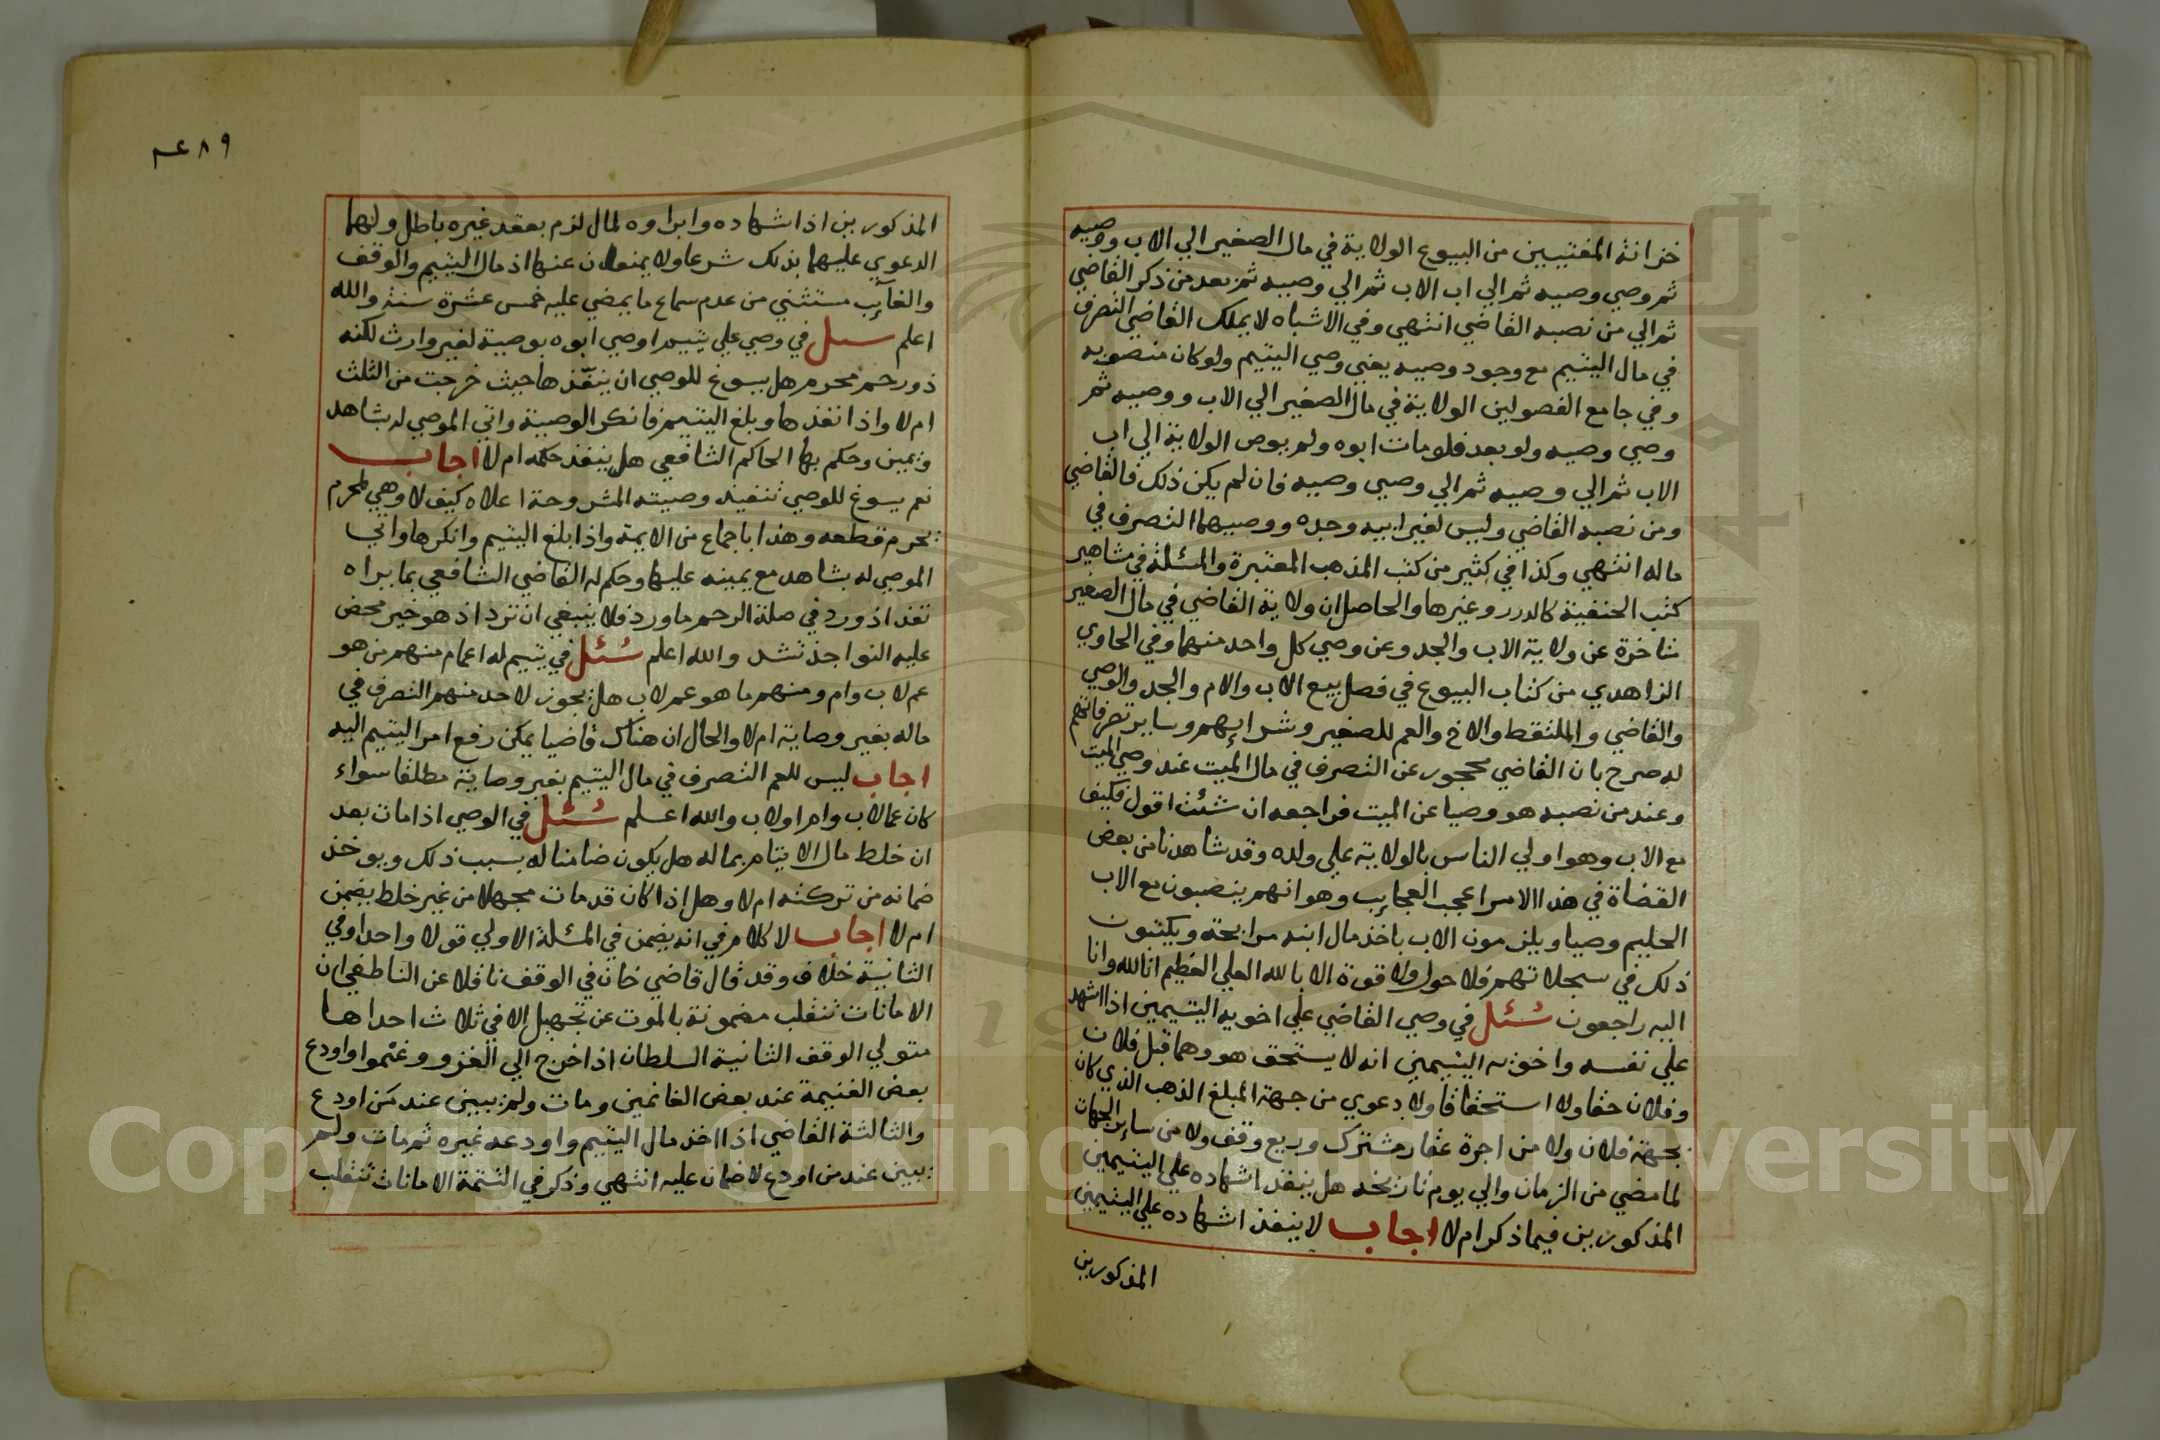 خزانة المفتيين من البيوع الولاية في مال الصغير الي الاب ووصيه
ثم وصي وصيه ثم الي اب الاب ثم الي وصيه ثم بعد من ذكر القاضي
ثم الي من نصبه القاضي انتهي وفي الاشباه لا يملك القاضي التصرف
في مال اليتيم مع وجود وصيه يعني وصي اليتيم ولو كان منصوبه
وفي جامع الفصولين الولاية في مال الصغير الي الاب ووصيه ثم
وصي وصيه ولو بعد فلو مات ابوه ولم يوص الولاية الي اب
الاب ثم الي وصيه ثم الي وصي وصيه فان لم يكن ذلك فالقاضي
ومن نصبه القاضي وليس لغير ابيه وجده ووصيهما التصرف في
ماله انتهي وكذا في كثير من كتب المذهب المعتبرة والمسئلة في مشاهير
كتب الحنفية كالدرر وغيرها والحاصل ان ولاية القاضي في مال الصغير
متاخرة عن ولاية الاب والجد وعن وصي كل واحد منهما وفي الحاوي
الزاهدي من كتاب البيوع في فصل بيع الاب والام والجد والوصي
والقاضي والملتقط والاخ والعم للصغير وشرايهم وساير تصرفاتهم
له صرح بان القاضي محجور عن التصرف في مال الميت عند وصي الميت
وعند من نصبه هو وصيا عن الميت فراجعه ان شئت اقول فكيف
مع الاب وهو اولي الناس بالولاية علي ولده وقد شاهدنا من بعض
القضاة في هذا الامر اعجب العجايب وهو انهم ينصبون مع الاب
الحليم وصيا ويلزمون الاب باخذ مال ابنه مرابحة ويكتبون
ذلك في سجلاتهم فلا حول ولا قوة الا بالله العلي العظيم انا لله وانا
اليه راجعون سُئل في وصي القاضي علي اخويه اليتيمين اذا اشهد
علي نفسه واخويه اليتيمين انه لا يستحق هو وهما قبل فلان
وفلان حقا ولا استحقاقا ولا دعوي من جهة المبلغ الذهب الذي كان
بجهة فلان ولا من اجرة عقار مشترك وريع وقف ولا من ساير الجهات
لما مضي من الزمان والي يوم تاريخه هل ينفذ اشهاده علي اليتيمين
المذكورين فيما ذكر ام لا اجاب لا ينفذ اشهاده علي اليتيمين
المذكورين
٨٩
المذكورين اذ اشهاده وابراوه لمال لزم بعقد غيره باطل ولهما
الدعوي عليهما بذلك شرعا ولا يمنعان عنها اذ مال اليتيم والوقف
والغايب مستثني من عدم سماع ما يمضي عليه خمس عشرة سنة والله
اعلم سئل في وصي علي يتيم اوصي ابوه بوصية لغير وارث لكنه
ذو رحم محرم هل يسوغ للوصي ان ينفّذها حيث خرجت من الثلث
ام لا واذا نفذها وبلغ اليتيم فانكر الوصية واتي الموصي له بشاهد
ويمين وحكم بها الحاكم الشافعي هل ينفذ حكمه ام لا اجاب
نعم يسوغ للوصي تنفيذ وصيته المشروحة اعلاه كيف لا وهي لمحرم
يحرم قطعه وهذا باجماع من الايمة واذا بلغ اليتيم وانكرها واتي
الموصي له بشاهد مع يمينه عليها وحكم له القاضي الشافعي بما يراه
نفذ اذ ورد في صلة الرحم ما ورد فلا ينبغي ان ترد اذ هو خير محض
عليه النواجذ تشد والله اعلم سُئل في يتيم له اعمام منهم من هو
عم لاب وام ومنهم ما هو عم لاب هل يجوز لاحد منهم التصرف في
ماله بغير وصاية ام لا والحال ان هناك قاضيا يمكن رفع امر اليتيم اليه
اجاب ليس للعم التصرف في مال اليتيم بغير وصاية مطلقا سواء
كان عما لاب وام او لاب والله اعلم سُئل في الوصي اذا مات بعد
ان خلط مال الايتام بماله هل يكون ضامنا له بسبب ذلك ويوخذ
ضمانه من تركته ام لا وهل اذا كان قد مات مجهلا من غير خلط يضمن
ام لا اجاب لا كلام في انه يضمن في المسئلة الاولي قولا واحدا وفي
الثانية خلاف وقد قال قاضي خان في الوقف ناقلا عن الناطفي ان
الامانات تنقلب مضمونة بالموت عن تجهيل الا في ثلاث احداها
متولي الوقف الثانية السلطان اذا خرج الي الغزو وغنموا واودع
بعض الغنيمة عند بعض الغانمين ومات ولم يبين عند من اودع
والثالثة القاضي اذا اخذ مال اليتيم واودعه غيره ثم مات ولم
يبين عند من اودع لا ضمان عليه انتهي وذكر في التتمة الامانات تنقلب
Copyright © King Saud University